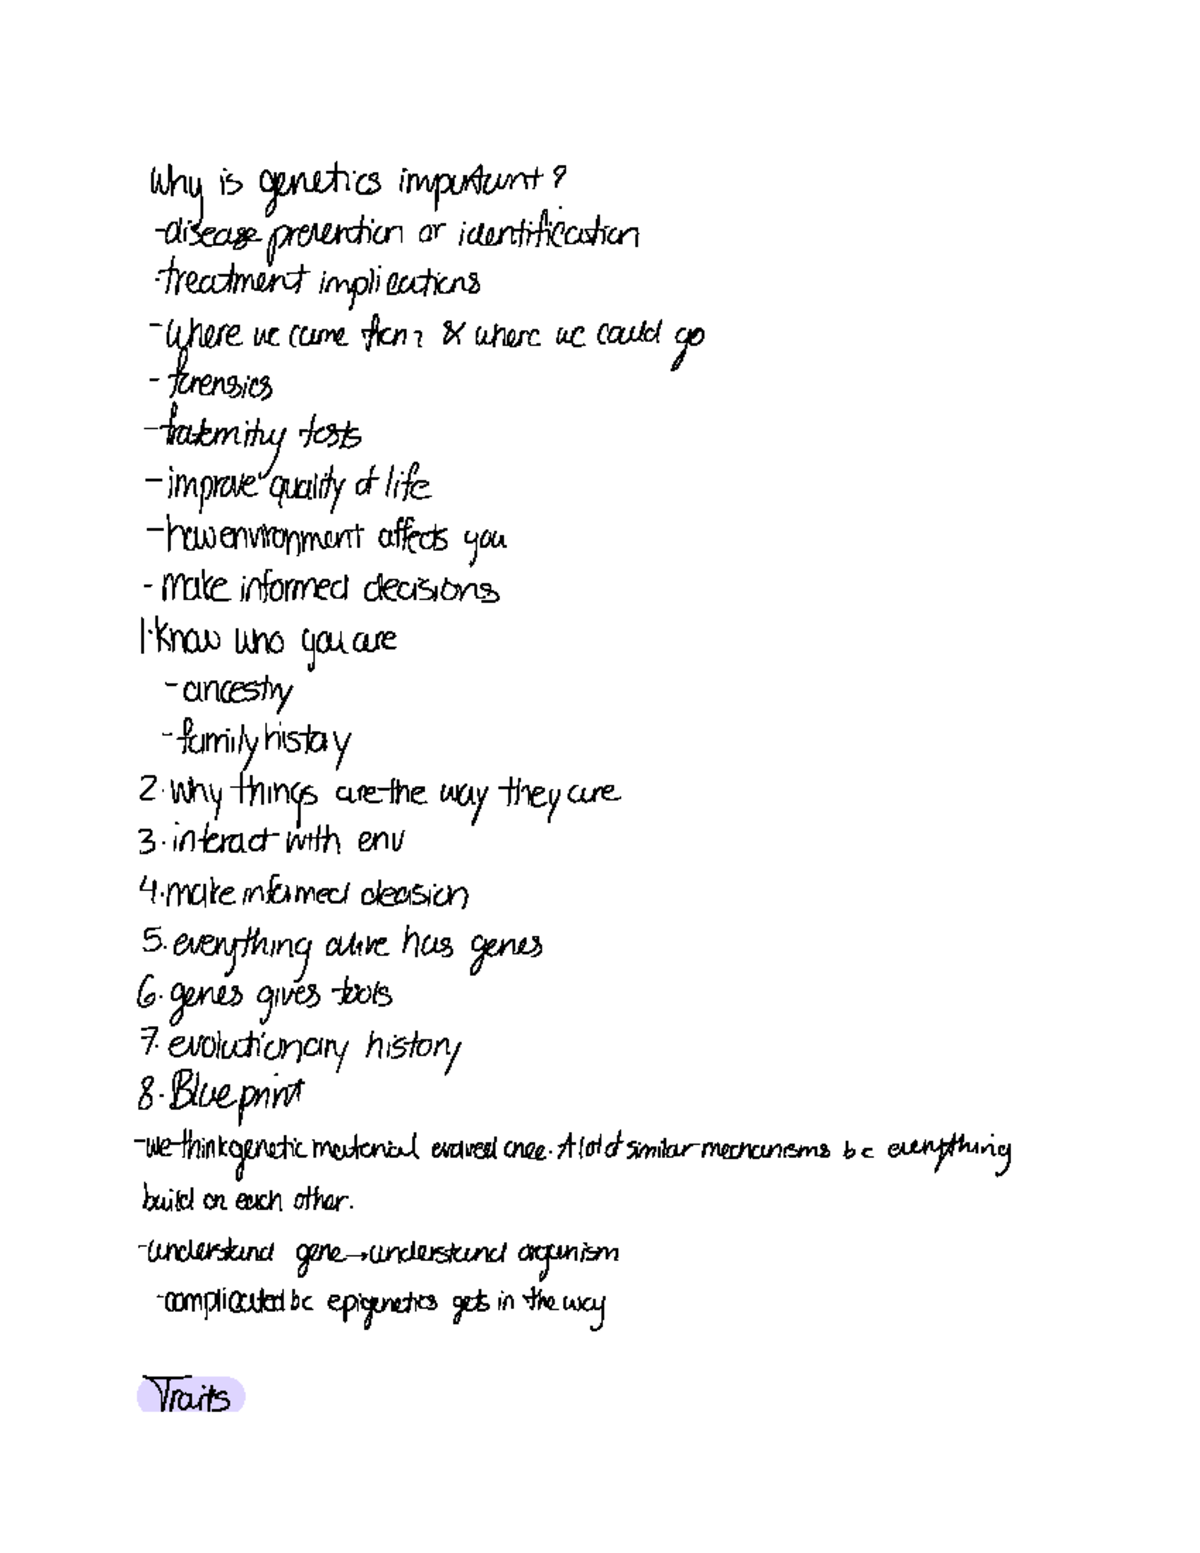 Why is genetics important?
-disease prevention or identification
-treatment implications
-where we came from? & where we could go
- forensics
-fraternity tests
-improve quality of life
-how environment affects you
- make informed decisions
1.Know who you are
-ancestry
-family history
2.why things are the way they are
3.interact with env
4.make informed decision
5.everything alive has genes
6.genes gives tools
7.evolutionary history
8.Blueprint
-we think genetic material evolved once. A lot of similar mechanisms bc everything
build on each other.
-understand gene→understand organism
-complicated bc epigenetics gets in the way
Traits